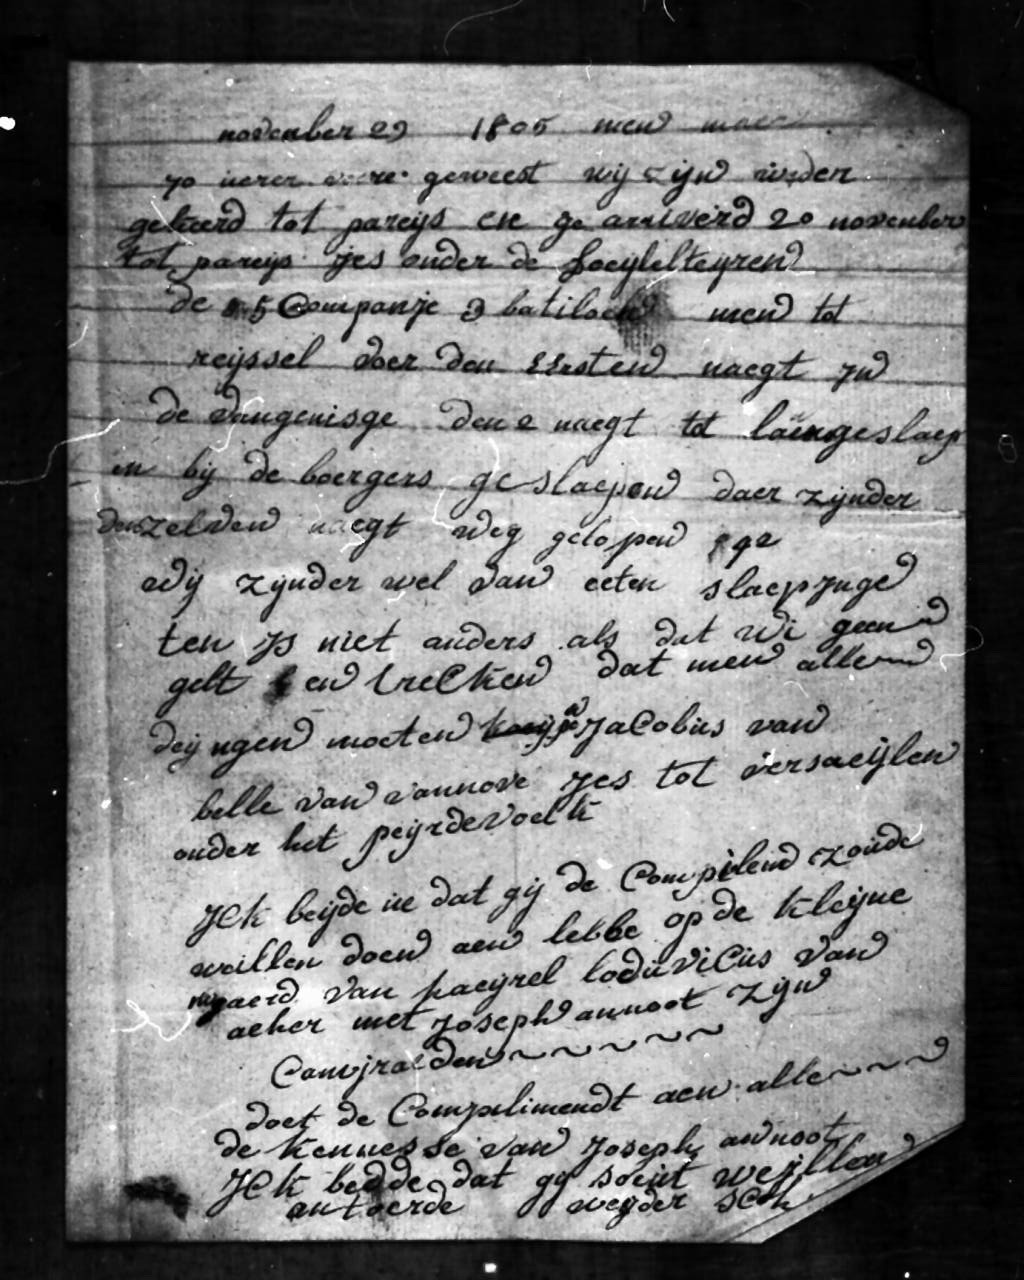 november 29 1805 men
70 geweest wij zijn
gekeerd tot pareys en ge arriverd 20 november
tot pareys yes onder de
de 5 Companje 3 batiloen men tot
reyssel doer den Eersten naegt yn
de vangenisge den 2 naegt tot
en bij de boergers ge slaepen daer zijnder
denzelven naegt weg gelopen 92
wij zijnder wel van eeten slaepynge
ten ys niet anders als dat wi geen
gelt en trecken dat men allen
deyngen moeten Jacobus van
belle van vannove yes tot versaeijlen
onder het peyrdevoelk
JCk beyde ue dat gij de Complend zoude
willen doen aen lebbe op de kleyne
van paeyrel lodùviCùs van
acker met Joseph annoot zijn
Camjraeden
doet de Complimendt aen alle
de kennesse van Joseph annoot
JCk bedde dat gy soeùt weyllen
antoerde weyder